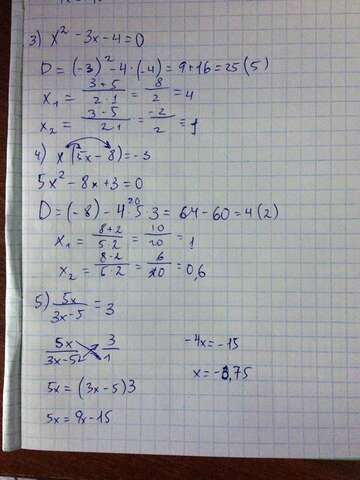 3) x² - 3x - 4 = 0
D = (-3)² - 4·(-4) = 9 + 16 = 25 (5)
x₁ = (3+5)/(2·1) = 8/2 = 4
x₂ = (3-5)/(2·1) = -2/2 = 1
4) x(5x - 8) = -3
5x² - 8x + 3 = 0
D = (-8) - 4·5·3 = 64 - 60 = 4 (2)
x₁ = (8+2)/(5·2) = 10/10 = 1
x₂ = (8-2)/(5·2) = 6/10 = 0,6
5) 5x/(3x-5) = 3
5x/(3x-5) 3/1
5x = (3x-5)3
5x = 9x-15
-4x = -15
x = -3,75